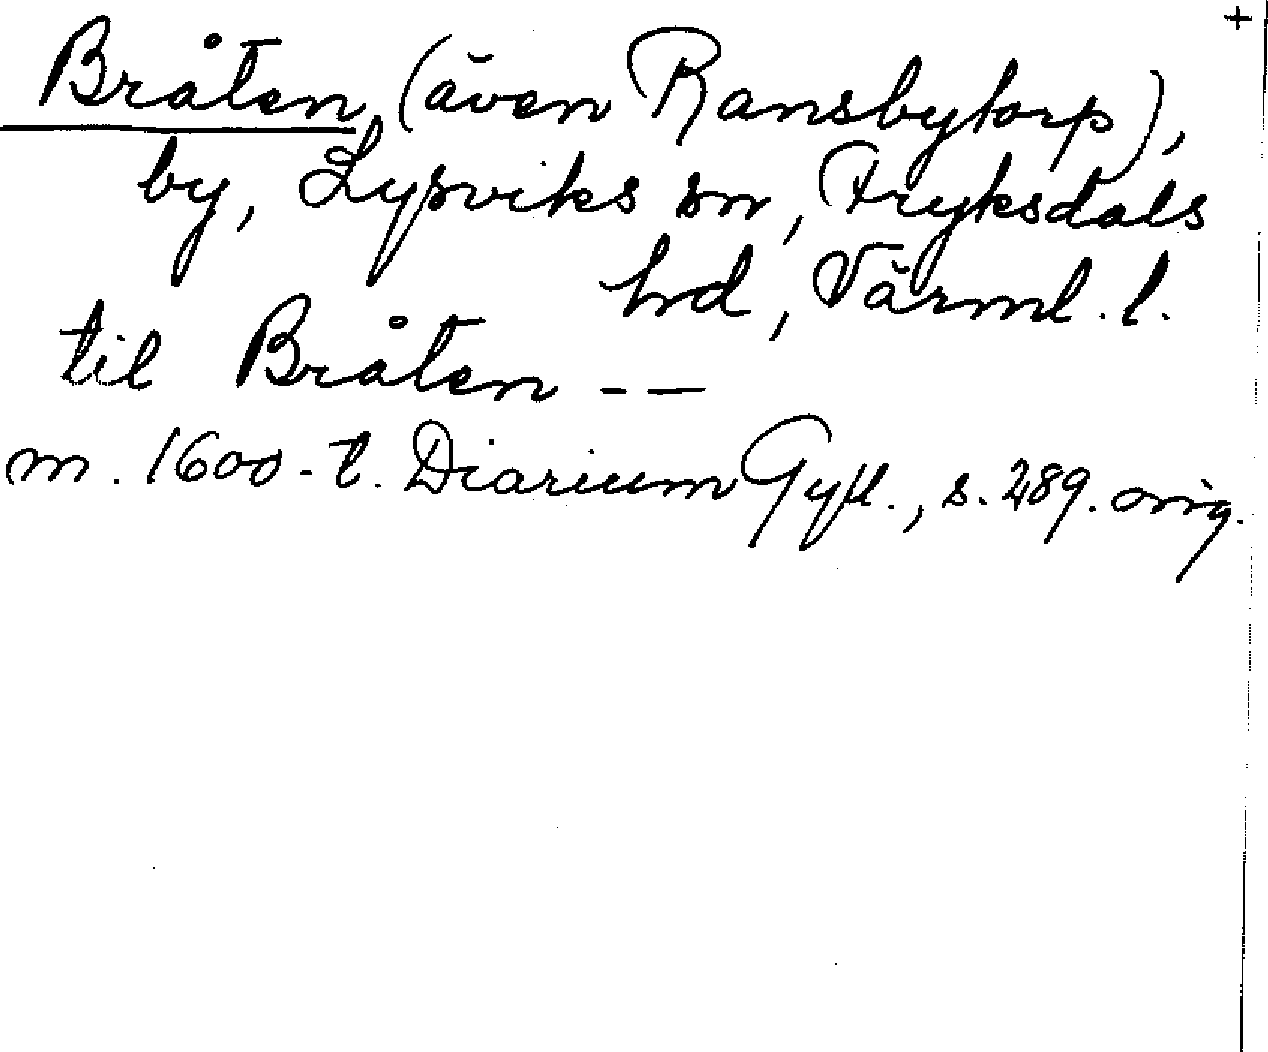 +
Bråten (även Ransbytorp),
by, Lysviks sn, Fryksdals
hd, Värml. l.
til Bråten --
m. 1600-t. Diarium Gyll., s. 289. orig.